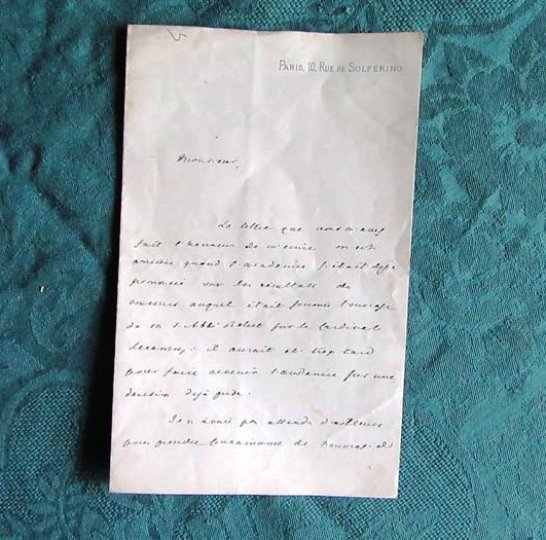 PARIS, 10, RUE DE SOLFÉRINO
Monsieur,
La lettre que vous m'avez
fait l'honneur de m'écrire m'est
arrivée quand l'académie s'était déjà
prononcé sur les résultats du
concours auquel était soumis l'ouvrage
de m l'Abbé sur le Cardinal
il aurait été trop tard
pour faire revenir l'académie sur une
décision déjà prise.
Je n'avais pas attendu d'ailleurs
pour prendre connaissance de l'ouvrage de